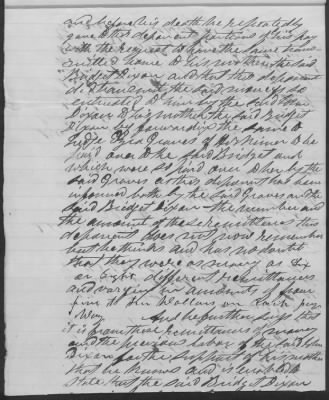 and before his death he repeatedly
gave to this deponent portions of his pay
with the request to have the same trans
mitted home to his mother the said
Bridget Dixon and that this deponent
did transmit the said moneys so
entrusted to him by the said John
Dixon to his mother the said Bridget
Dixon by forwarding the same to
Judge Ezra Graves of Herkimer to be
paid over to the said Bridget and
which were so paid over to her by the
said Graves as this deponent has been
informed both by the said Graves and the
said Bridget Dixon the number and
the amount of these remittances this
deponent does not now remember
but he thinks and has no doubt
that they were as many as six
or eight different remittances
and varying in amounts of from
five to ten dollars on each pay
day And he further says that
it is from these remittances of money
and the previous labor of the said John
Dixon for the support of his mother
that he knows and is enabled to
state that the said Bridget Dixon